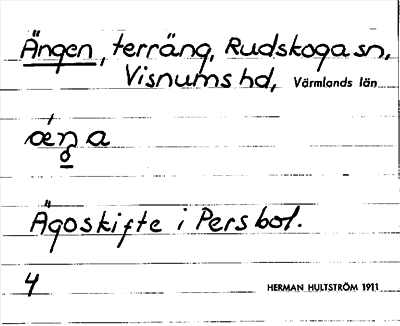 Ängen, terräng, Rudskoga sn,
Visnums hd, Värmlands län
Ägoskifte i Persbol.
4
HERMAN HULTSTRÖM 1911